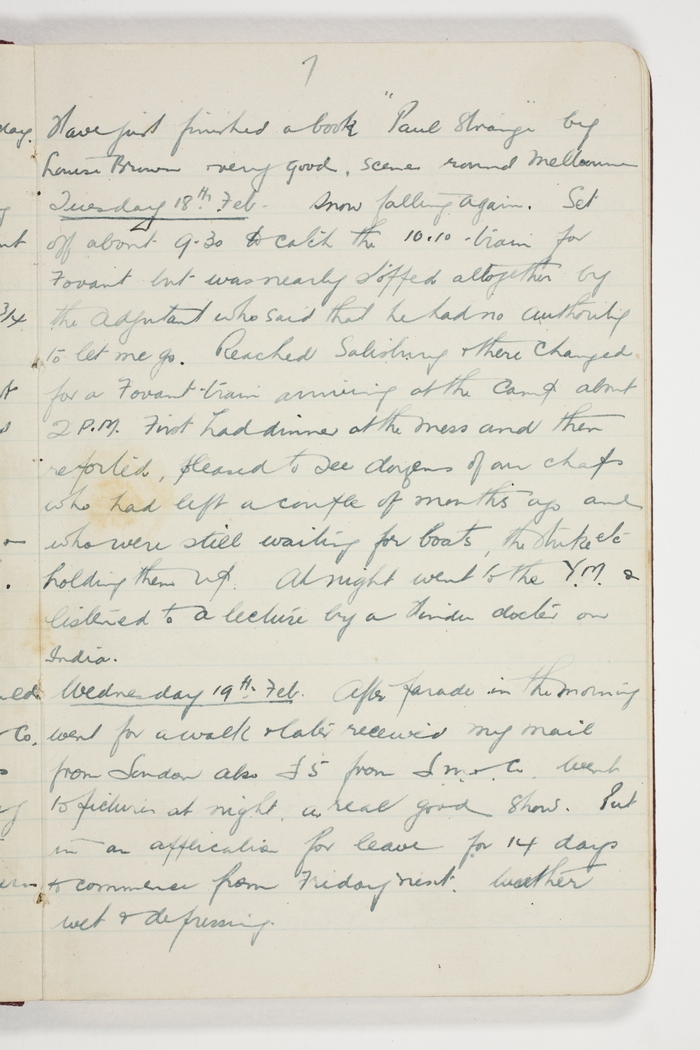 7
Have just finished a book "Paul Strange" by
Louise Brown very good, scenes round Melbourne
Tuesday 18th Feb. Snow falling again. Set
off about 9.30 to catch the 10.10 train for
Fovant but was nearly stopped altogether by
the Adjutant who said that he had no authority
to let me go. Reached Salisbury & there changed
for a Fovant train arriving at the Camp about
2 P.M. First had dinner at the mess and then
reported, pleased to see dozens of our chaps
who had left a couple of months ago and
who were still waiting for boats, the strike etc
holding them up. At night went to the Y.M. &
listened to a lecture by a Hindu doctor on
India.
Wednesday 19th Feb. After parade in the morning
went for a walk & later received my mail
from London also £5 from & Co. Went
to pictures at night, a real good show. Put
in an application for leave for 14 days
to commence from Friday next. Weather
wet & depressing.